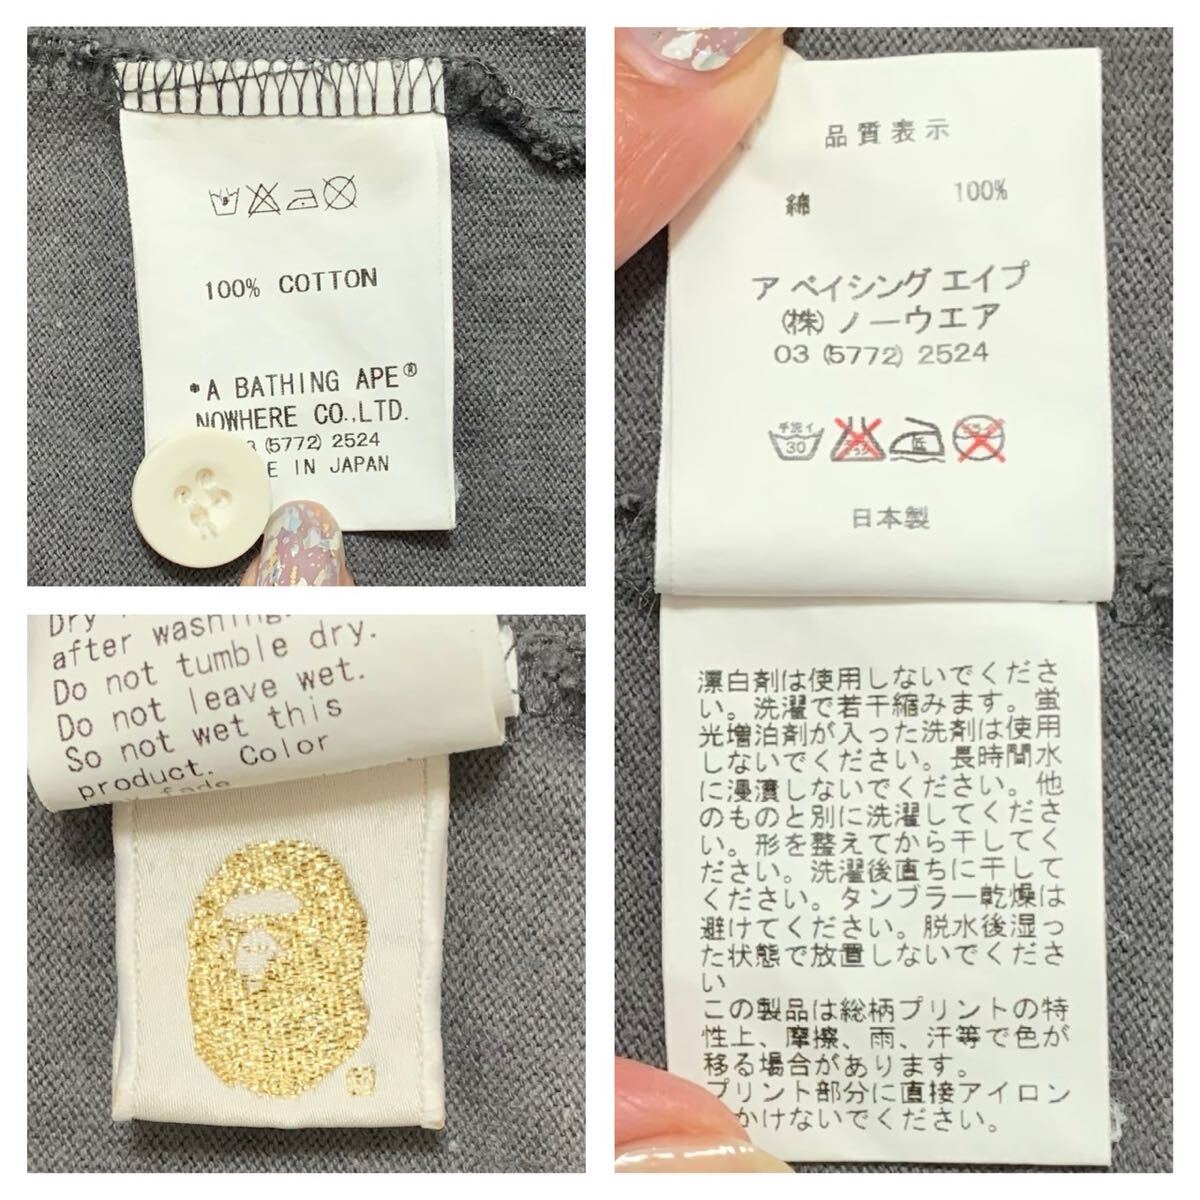 100% COTTON
*A BATHING APE®
NOWHERE CO.,LTD.
3 (5772) 2524
E IN JAPAN
Dry
after washing.
Do not tumble dry.
Do not leave wet.
So not wet this
product. Color
fade
品質表示
綿 100%
ア ベイシング エイプ
(株) ノーウエア
03 (5772) 2524
手洗イ
30
低
日本製
漂白剤は使用しないでくださ
い。洗濯で若干縮みます。蛍
光増泊剤が入った洗剤は使用
しないでください。長時間水
に浸漬しないでください。他
のものと別に洗濯してくださ
い。形を整えてから干してく
ださい。洗濯後直ちに干して
ください。タンブラー乾燥は
避けてください。脱水後湿っ
た状態で放置しないでくださ
い
この製品は総柄プリントの特
性上、摩擦、雨、汗等で色が
移る場合があります。
プリント部分に直接アイロン
かけないでください。